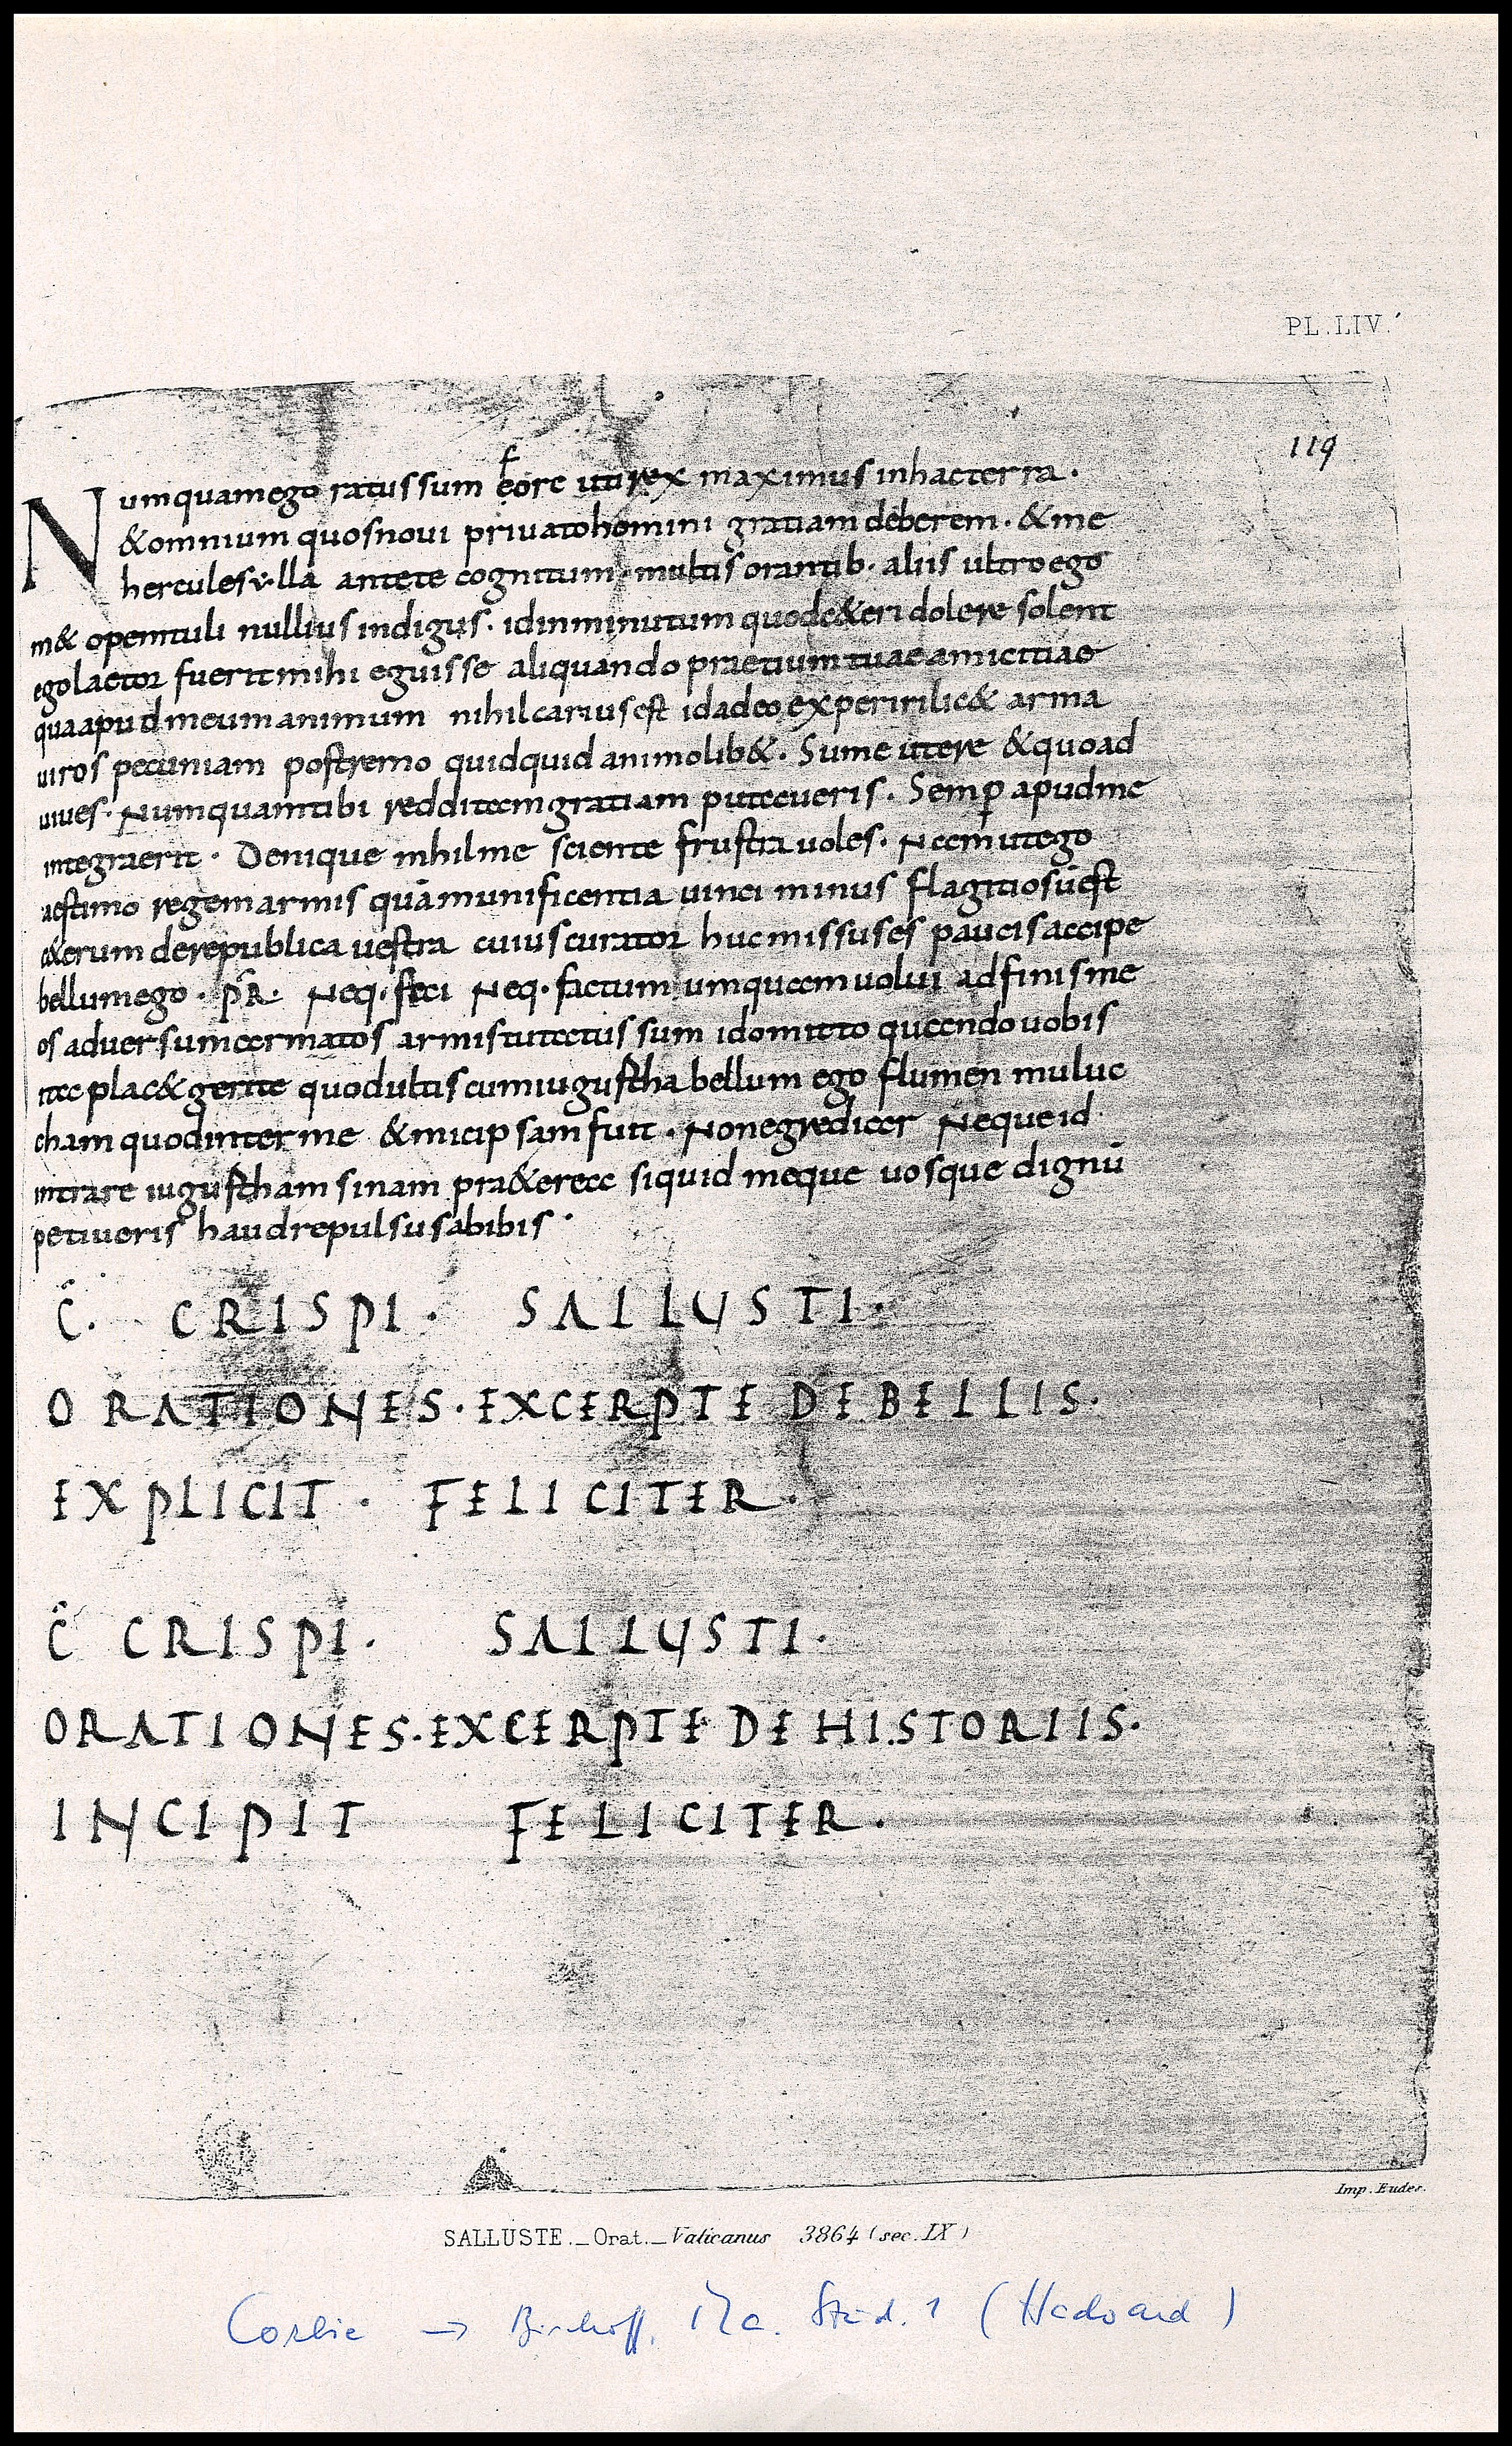 PL. LIV.
119
Numquamego ratus sum fore uti rex maximus inhacterra.
&omnium quosnoui priuatohomini gratiam deberem. &me
hercules ulla antete cognitum. multis orantib. aliis ultroego
m& opemtuli nullius indigus. idinminutum quodc&eri dolere solent
egolaetor fuerit mihi eguisse aliquando praetium tuae amicitiae
quaapudmeumanimum nihilcariusest idadeo experirilic& arma
uiros pecuniam postremo quidquid animolib&. Sume utere &quoad
uiues. Numquamtibi redditamgratiam putaueris. Semp apudme
integraerit. Denique nihilme sciente frustra uoles. Namutego
aestimo regemarmis quāmunificentia uinci minus flagitiosūest
c&erum derepublica uestra cuiuscurator hucmissuses paucisaccipe
bellumego. P̄R̄. Neq. feci Neq. factum umquamuolui adfinisme
os aduersumarmatos armistutatus sum idomitto quandouobis
itaplac& gerite quodultiscumiugustha bellum ego flumen muluc
cham quodinterme &micipsamfuit. Nonegrediar Nequeid
intrare iugustham sinam pra&erea siquid meque uosque dignū
petiueris haudrepulsusabibis.
C̄. CRISPI. SALLUSTI.
ORATIONES. EXCERPTE DE BELLIS.
EXPLICIT. FELICITER.
C̄ CRISPI. SALLUSTI.
ORATIONES. EXCERPTE DE HISTORIIS.
INCIPIT FELICITER.
Imp. Eudes.
SALLUSTE._Orat._Vaticanus 3864 (sec. IX)
Corbie → Bischoff, Ma. Stud. 1 (Hadoard)